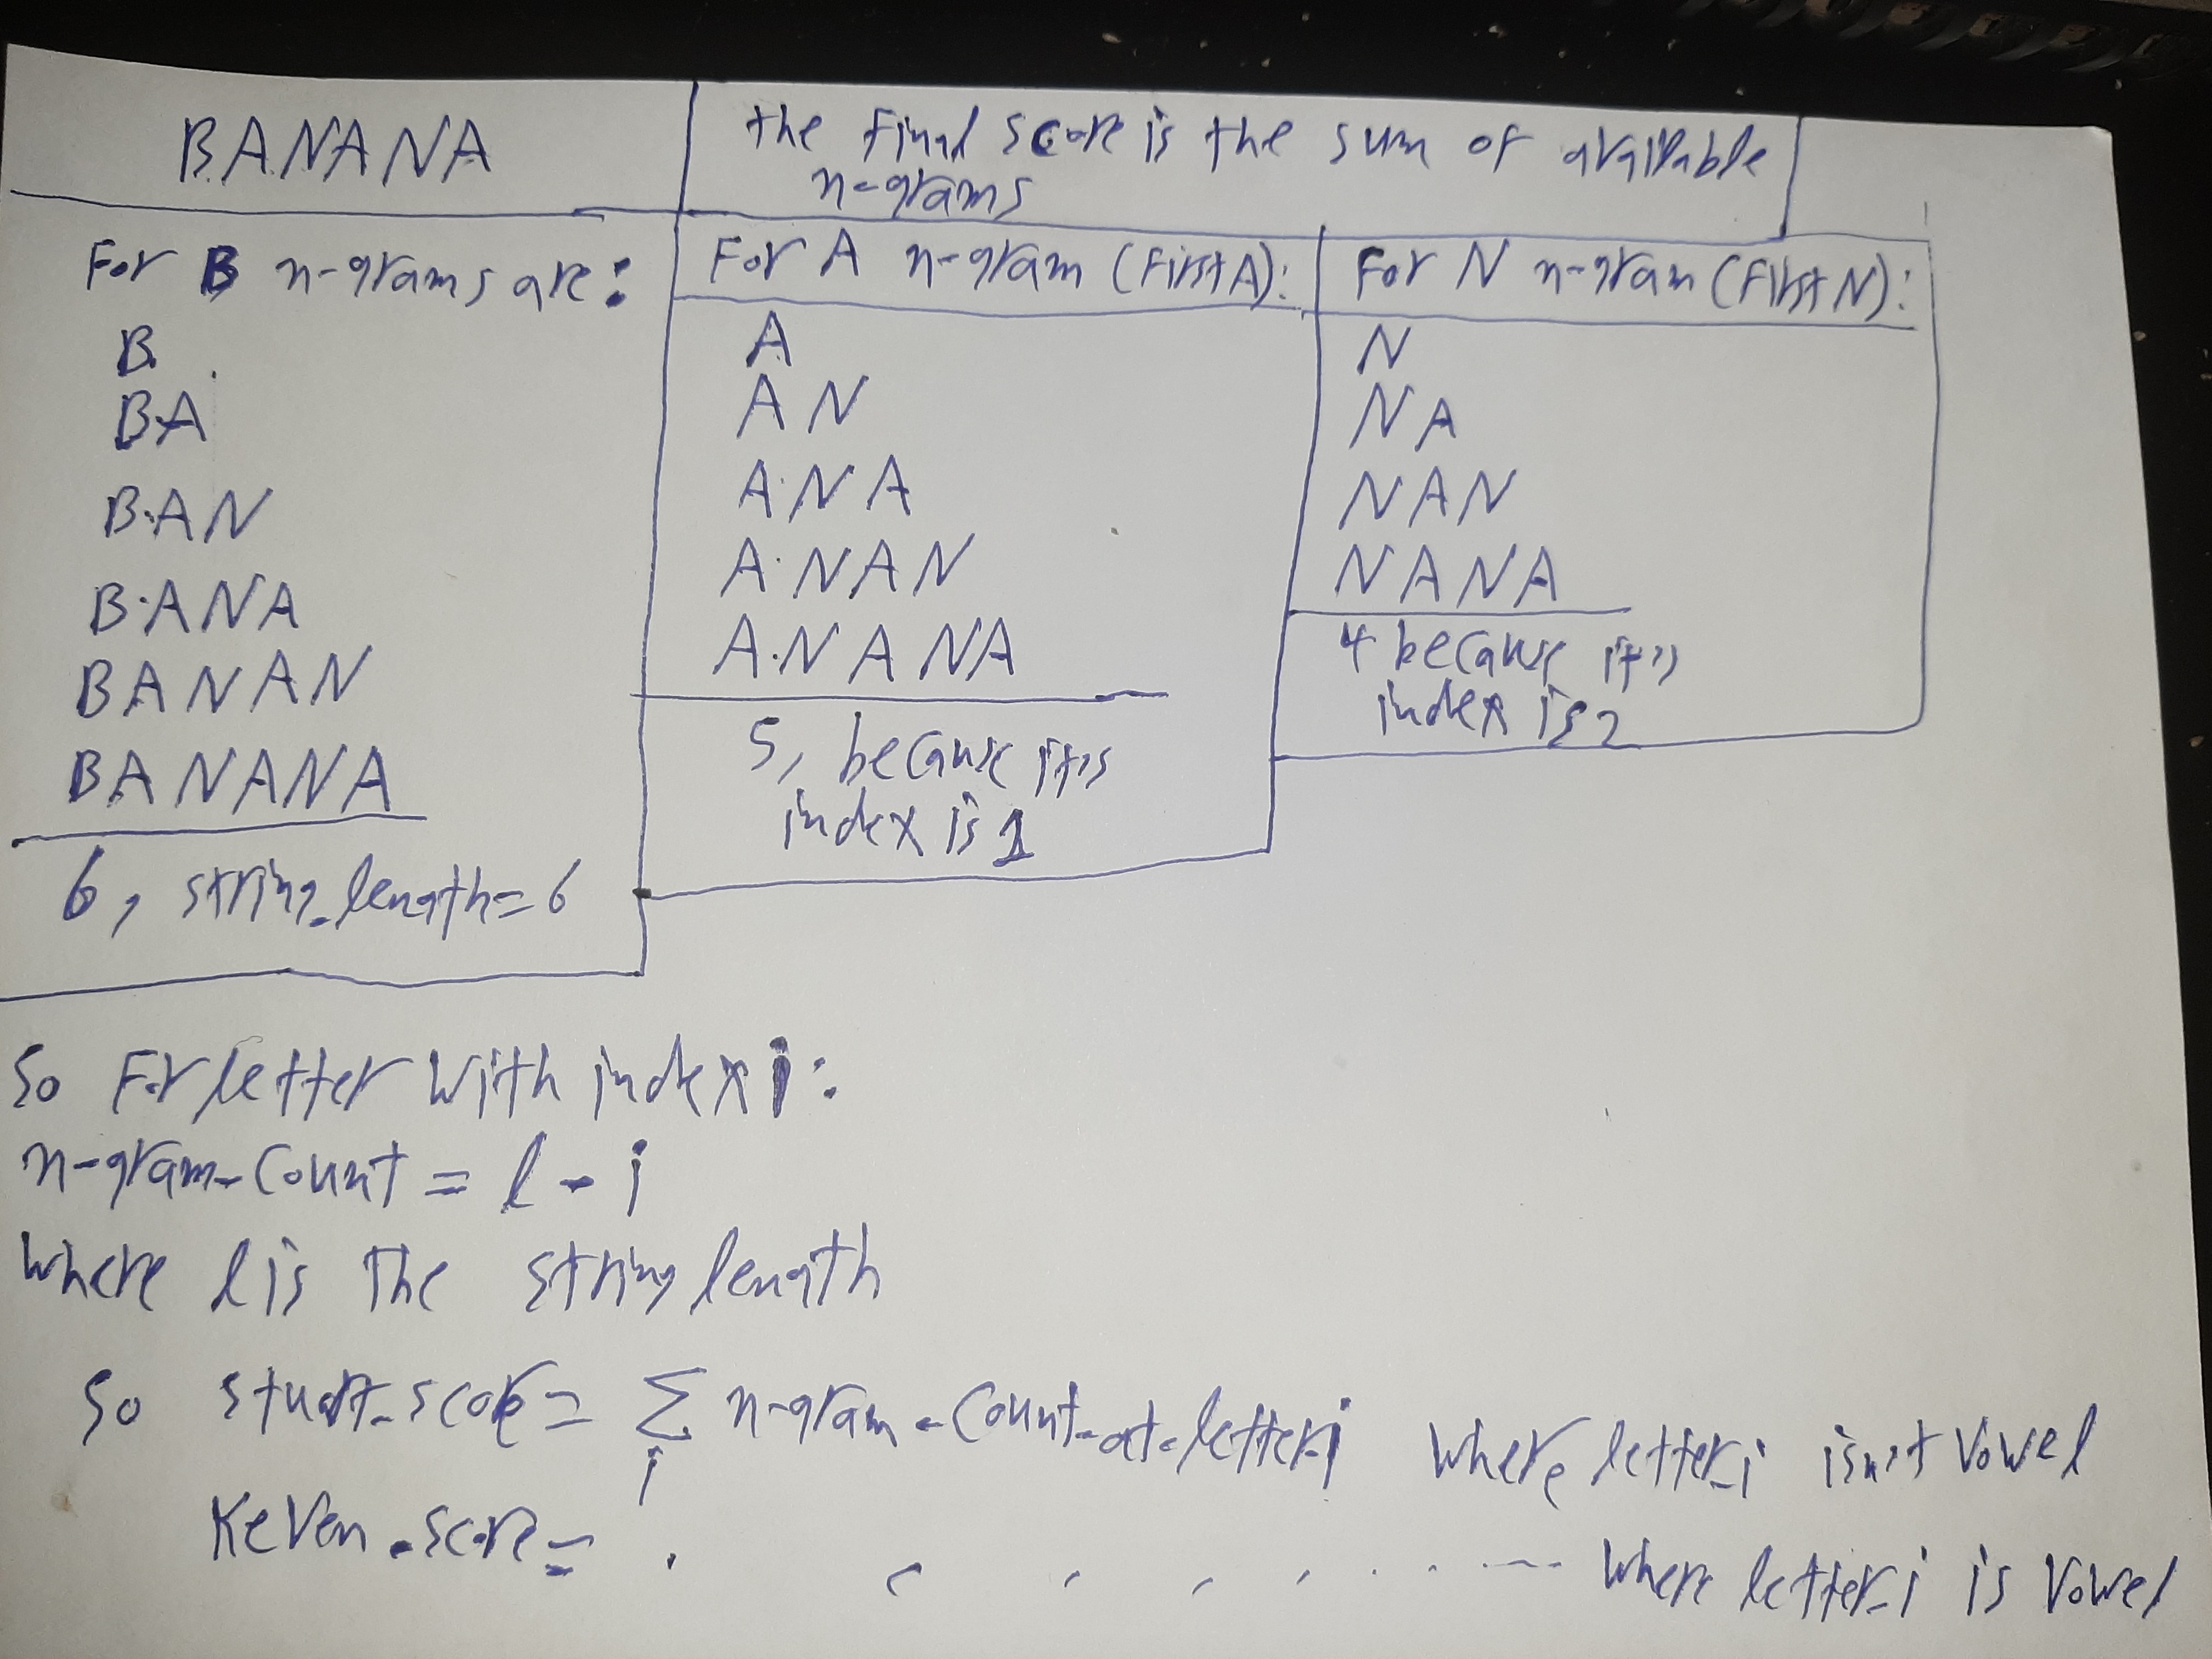 BANANA
the final score is the sum of available
n-grams
For B n-grams are:
B
BA
BAN
BANA
BANAN
BANANA
6, string_length=6
For A n-gram (First A):
A
AN
ANA
ANAN
ANANA
5, because it's
index is 1
For N n-gram (First N):
N
NA
NAN
NANA
4 because it's
index is 2
So For letter with index i:
n-gram-count = l - i
where l is the string length
So score= Σ n-gram-count-at-letter-i where letter-i isn't vowel
i
Keven-score= . . . . . . . ---- where letter-i is vowel